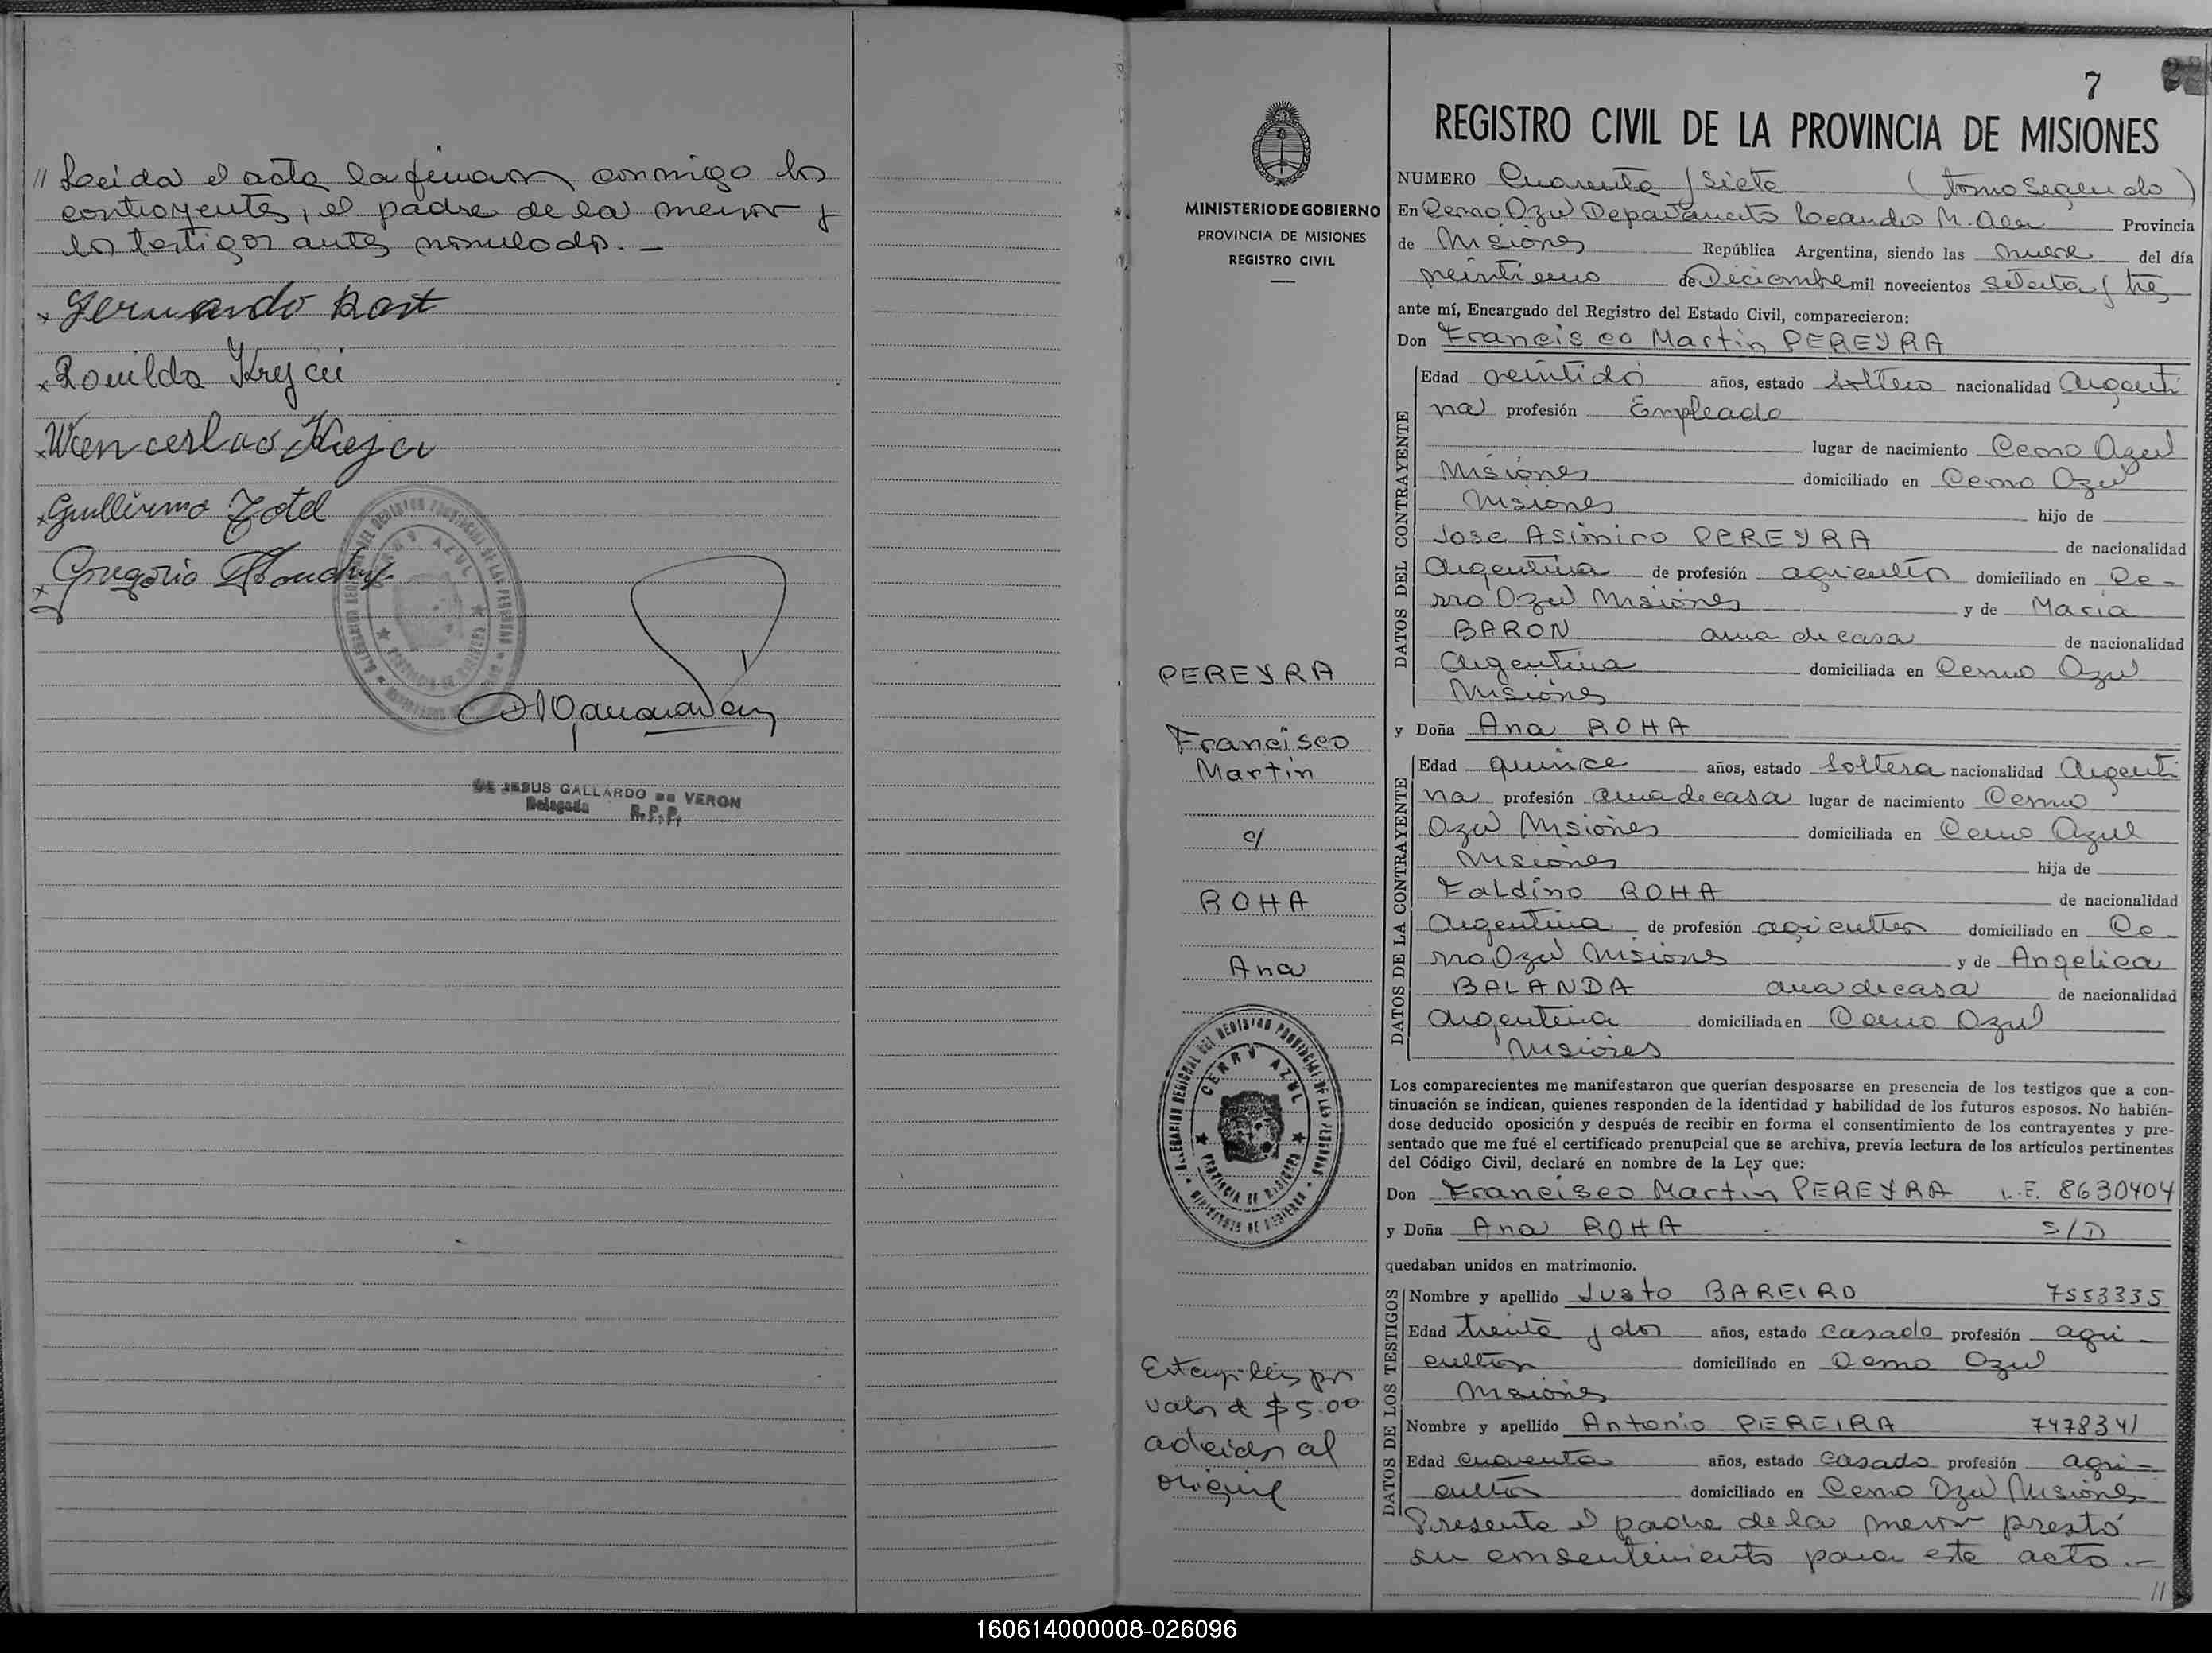 // Leida el acta la firman conmigo los
contrayentes, el padre de la menor y
los testigos antes nombrados. —
x Germando Rast
x Romilda Krejcii
x Wencerlao Krejci
x Guillermo Zotel
x Gregorio
DE JESUS GALLARDO DE VERON
Delegada R.P.P.
MINISTERIO DE GOBIERNO
PROVINCIA DE MISIONES
REGISTRO CIVIL
PEREYRA
Francisco
Martin
c/
ROHA
Ana
DELEGACION REGIONAL DEL REGISTRO PROVINCIAL DE LAS PERSONAS
CERRO AZUL
PROVINCIA DE MISIONES
MINISTERIO DE GOBIERNO
Estampillas por
valor de $ 5.00
aderidos al
original
7
REGISTRO CIVIL DE LA PROVINCIA DE MISIONES
NUMERO Cuarenta y siete (tomo segundo)
En Cerro Azul Departamento Leandro N. Alem Provincia
de Misiones República Argentina, siendo las nueve del día
veintiuno de Diciembre mil novecientos setenta y tres
ante mí, Encargado del Registro del Estado Civil, comparecieron:
Don Francisco Martin PEREYRA
DATOS DEL CONTRAYENTE
Edad veintidos años, estado soltero nacionalidad Argenti
na profesión Empleado
lugar de nacimiento Cerro Azul
Misiones domiciliado en Cerro Azul
Misiones hijo de
Jose Asimiro PEREYRA de nacionalidad
Argentina de profesión agricultor domiciliado en Ce-
rro Azul Misiones y de Maria
BARON ama de casa de nacionalidad
Argentina domiciliada en Cerro Azul
Misiones
y Doña Ana ROHA
DATOS DE LA CONTRAYENTE
Edad quince años, estado soltera nacionalidad Argenti
na profesión ama de casa lugar de nacimiento Cerro
Azul Misiones domiciliada en Cerro Azul
Misiones hija de
Faldino ROHA de nacionalidad
Argentina de profesión agricultor domiciliado en Ce-
rro Azul Misiones y de Angelica
BALANDA ama de casa de nacionalidad
Argentina domiciliada en Cerro Azul
Misiones
Los comparecientes me manifestaron que querían desposarse en presencia de los testigos que a con-
tinuación se indican, quienes responden de la identidad y habilidad de los futuros esposos. No habién-
dose deducido oposición y después de recibir en forma el consentimiento de los contrayentes y pre-
sentado que me fué el certificado prenupcial que se archiva, previa lectura de los artículos pertinentes
del Código Civil, declaré en nombre de la Ley que:
Don Francisco Martin PEREYRA L.E. 8630404
y Doña Ana ROHA S/D
quedaban unidos en matrimonio.
DATOS DE LOS TESTIGOS
Nombre y apellido Justo BAREIRO 7553335
Edad treinta y dos años, estado casado profesión agri-
cultor domiciliado en Cerro Azul
Misiones
Nombre y apellido Antonio PEREIRA 7478341
Edad cuarenta años, estado casado profesión agri-
cultor domiciliado en Cerro Azul Misiones
Presente el padre de la menor prestó
su consentimiento para este acto.—
//
160614000008-026096